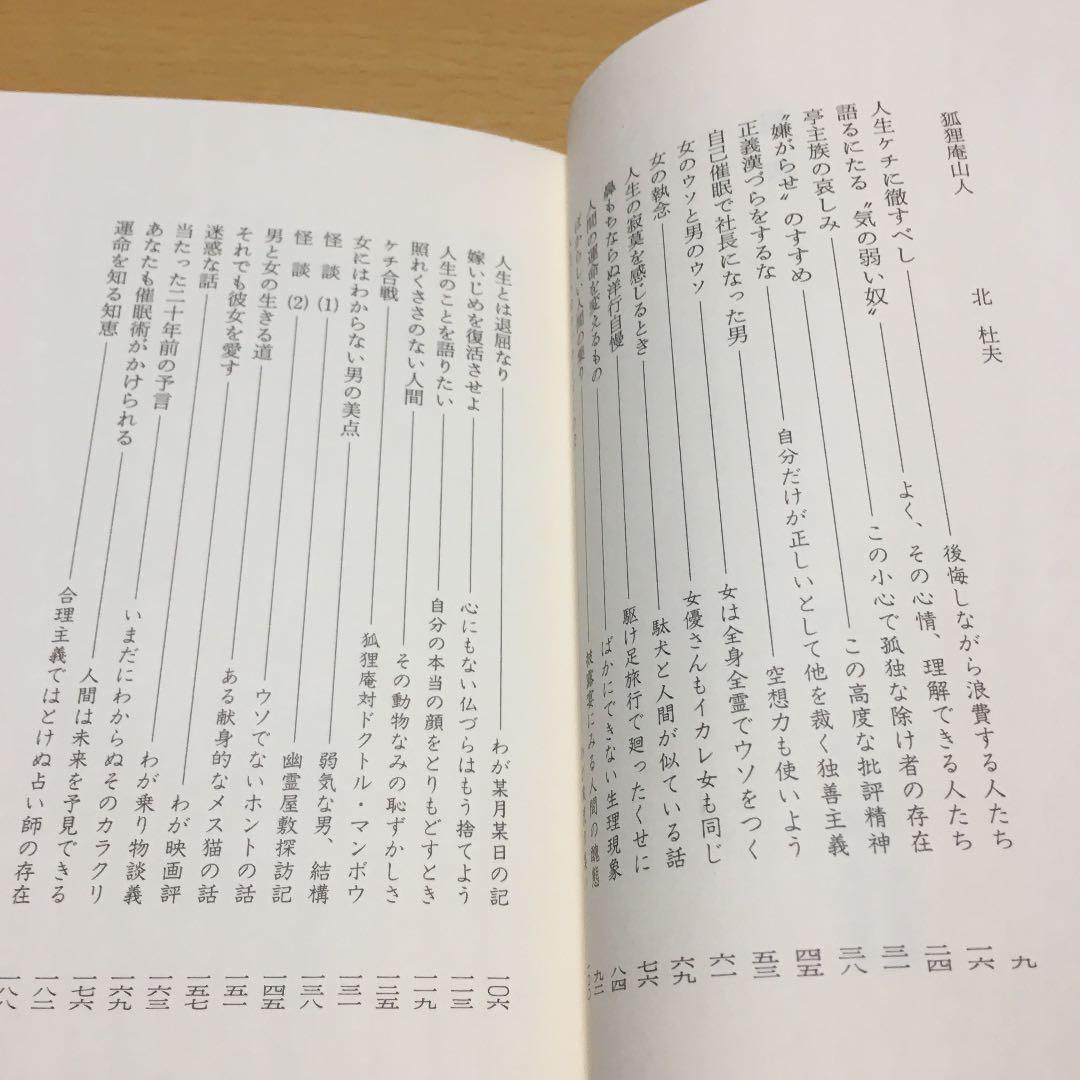 狐狸庵山人　北　杜夫　九
人生ケチに徹すべし――後悔しながら浪費する人たち　一六
語るにたる〝気の弱い奴〟――よく、その心情、理解できる人たち　二四
亭主族の哀しみ――この小心で孤独な除け者の存在　三一
〝嫌がらせ〟のすすめ――この高度な批評精神　三八
正義漢づらをするな――自分だけが正しいとして他を裁く独善主義　四五
自己催眠で社長になった男――空想力も使いよう　五三
女のウソと男のウソ――女は全身全霊でウソをつく　六一
女の執念――女優さんもイカレ女も同じ　六九
人生の寂寞を感じるとき――駄犬と人間が似ている話　七六
鼻もちならぬ洋行自慢――駆け足旅行で廻ったくせに　八四
人間の運命を変えるもの――ばかにできない生理現象　九二
人間の集り――披露宴にみる人間の醜態
人生とは退屈なり――わが某月某日の記　一〇六
嫁いじめを復活させよ――心にもない仏づらはもう捨てよう　一一三
人生のことを語りたい――自分の本当の顔をとりもどすとき　一一九
照れくささのない人間――その動物なみの恥ずかしさ　一二五
ケチ合戦――狐狸庵対ドクトル・マンボウ　一三一
女にはわからない男の美点――弱気な男、結構　一三八
怪　談　(1)――幽霊屋敷探訪記　一四五
怪　談　(2)――ウソでないホントの話　一五一
男と女の生きる道――ある献身的なメス猫の話　一五七
それでも彼女を愛す――わが映画評　一六三
迷惑な話――わが乗り物談義　一六九
当たった二十年前の予言――いまだにわからぬそのカラクリ　一七六
あなたも催眠術がかけられる――人間は未来を予見できる　一八二
運命を知る知恵――合理主義ではとけぬ占い師の存在　一八八